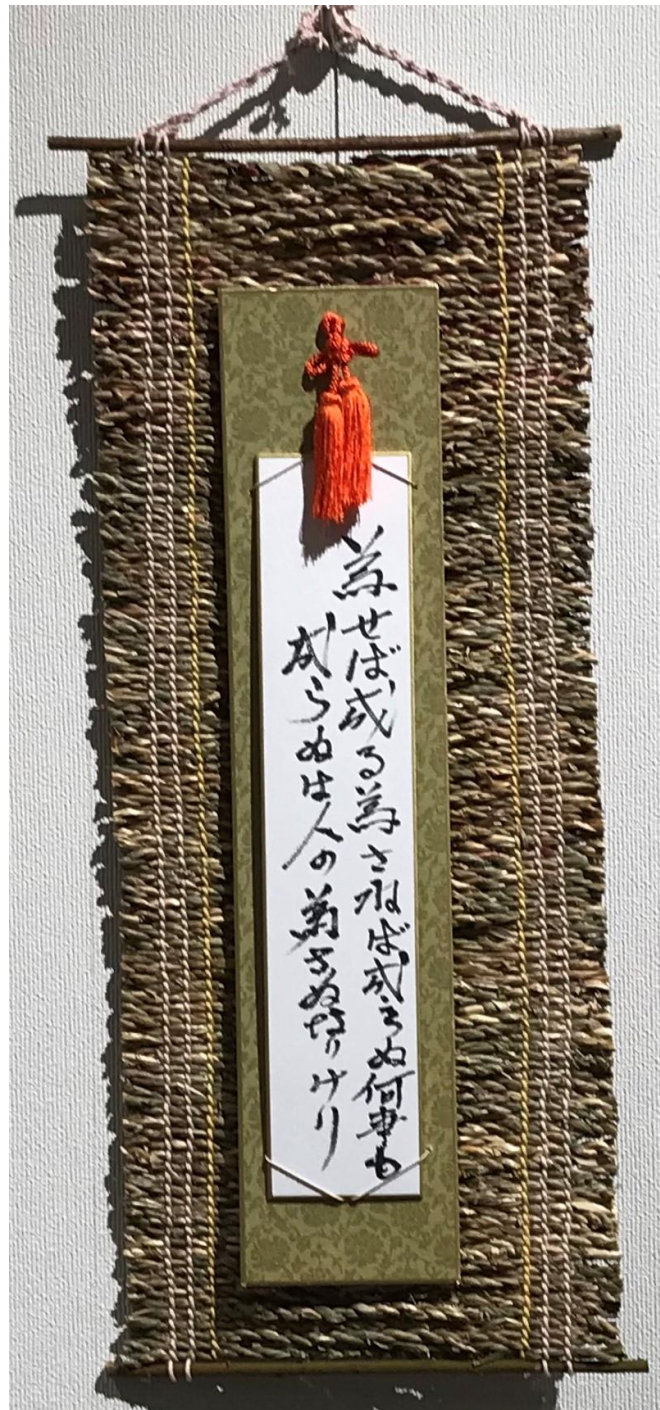 為せば成る為さねば成らぬ何事も
成らぬは人の為さぬ好りけり